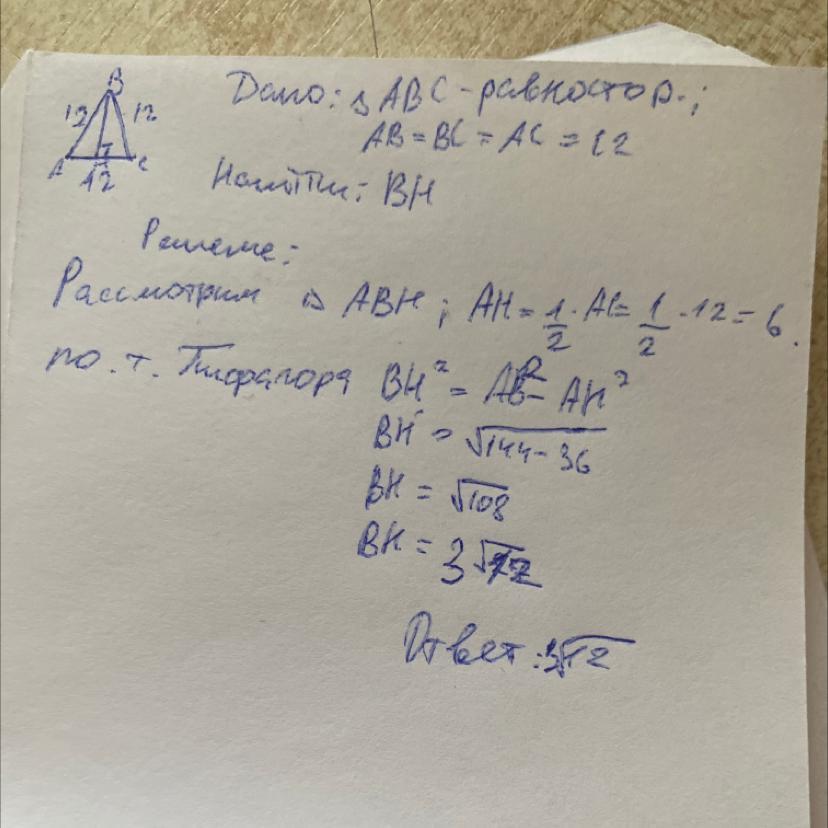 B
12 12
A C
12
Дано: △ABC - равностор.;
AB = BC = AC = 12
Найти: BH
Решение:
Рассмотрим △ ABH; AH = 1/2 · AC = 1/2 · 12 = 6.
по. т. Пифагора BH² = AB² - AH²
BH = √144 - 36
BH = √108
BH = 3√12
Ответ: 3√12